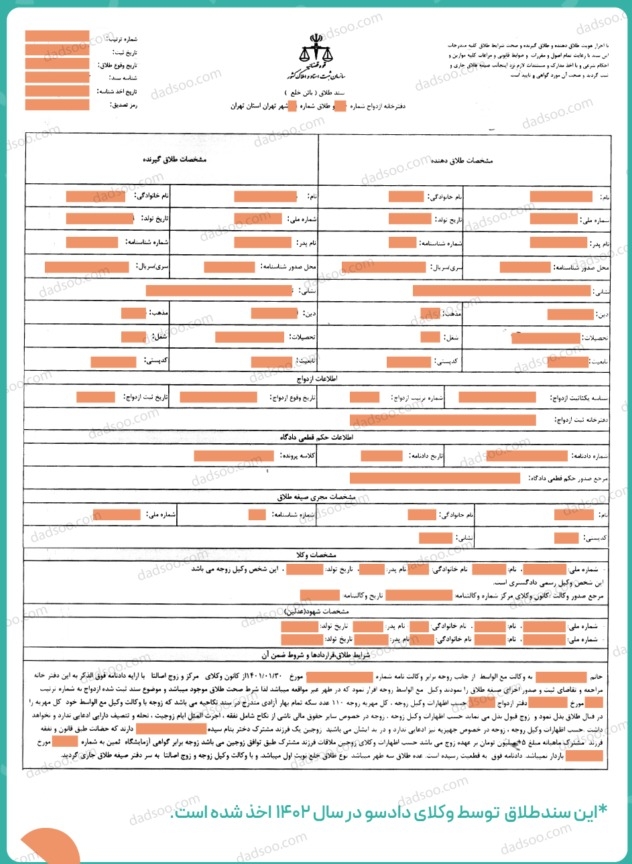 شماره ترتیب:
تاریخ ثبت:
تاریخ وقوع طلاق:
شماره سند:
تاریخ اخذ شناسه:
رمز تصدیق:
قوه قضائیه
سازمان ثبت اسناد و املاک کشور
سند طلاق ( بائن خلع )
دفترخانه ازدواج شماره و طلاق شماره شهر تهران استان تهران
با احراز هویت طلاق دهنده و طلاق گیرنده و صحت شرایط طلاق کلیه مندرجات
این سند با رعایت تمام اصول و مقررات و ضوابط قانونی و مراعات کلیه موازین و
احکام شرعی و با اخذ مدارک و مستندات لازم نزد اینجانب صیغه طلاق جاری و
ثبت گردید و صحت آن مورد گواهی و تایید است
مشخصات طلاق دهنده
مشخصات طلاق گیرنده
نام: نام خانوادگی: نام: نام خانوادگی:
شماره ملی: تاریخ تولد: شماره ملی: تاریخ تولد:
نام پدر: شماره شناسنامه: نام پدر: شماره شناسنامه:
محل صدور شناسنامه: سری/سریال: محل صدور شناسنامه: سری/سریال:
نشانی: نشانی:
دین: مذهب: دین: مذهب:
تحصیلات: شغل: تحصیلات: شغل:
تابعیت: کدپستی: تابعیت: کدپستی:
اطلاعات ازدواج
شناسه یکتاثبت ازدواج: شماره ترتیب ازدواج: تاریخ وقوع ازدواج: تاریخ ثبت ازدواج:
دفترخانه ثبت ازدواج:
اطلاعات حکم قطعی دادگاه
شماره دادنامه: تاریخ دادنامه: کلاسه پرونده:
مرجع صدور حکم قطعی دادگاه:
مشخصات مجری صیغه طلاق
نام: نام خانوادگی: شماره شناسنامه: شماره ملی:
کدپستی: نشانی:
مشخصات وکلا
شماره ملی: ، نام: نام خانوادگی نام پدر: ، تاریخ تولد: ، این شخص وکیل زوجه می باشد
این شخص وکیل رسمی دادگستری است.
مرجع صدور وکالت :کانون وکلای مرکز شماره وکالتنامه تاریخ وکالتنامه
مشخصات شهود(عدلین)
شماره ملی: ، نام: نام خانوادگی نام پدر: تاریخ تولد:
شماره ملی: ، نام: نام خانوادگی: نام پدر: تاریخ تولد:
شرایط طلاق،قراردادها و شروط ضمن آن
خانم به وکالت مع الواسط از جانب زوجه برابر وکالت نامه شماره مورخ ۱۴۰۱/۰۱/۳۰از کانون وکلای مرکز و زوج اصالتا با ارایه دادنامه فوق الذکر به این دفتر خانه
مراجعه و تقاضای ثبت و صدور اجرای صیغه طلاق را نمودند وکیل مع الواسط زوجه اقرار نمود که در طهر غیر مواقعه میباشد لذا شرط صحت طلاق موجود میباشد و موضوع سند ثبت شده ازدواج به شماره ترتیب
مورخ دفتر ازدواج حسب اظهارات وکیل زوجه ، کل مهریه زوجه ۱۱۰ عدد سکه تمام بهار آزادی مندرج در سند نکاحیه می باشد که زوجه با وکالت وکیل مع الواسط خود کل مهریه را
در قبال طلاق بذل نمود و زوج قبول بذل می نماید حسب اظهارات وکیل زوجه ، زوجه در خصوص سایر حقوق مالی ناشی از نکاح شامل نفقه ، اجرت المثل ایام زوجیت ، نحله و تنصیف دارایی ادعایی ندارد و نخواهد
داشت .حسب اظهارات وکیل زوجه ، زوجه در خصوص جهیزیه نیز ادعایی ندارد و در ید ایشان می باشید زوجین یک فرزند مشترک دختر بنام سیده دارند که حضانت طبق قانون و نفقه
فرزند مشترک ماهیانه مبلغ میلیون تومان بر عهده زوج می باشد حسب اظهارات وکلای زوجین ملاقات فرزند مشترک طبق توافق زوجین می باشد زوجه برابر گواهی آزمایشگاه ثمین به شماره مورخ
باردار نمیباشد. دادنامه فوق به قطعیت رسیده است. عده طلاق سه طهر میباشد. نوع طلاق خلع نوبت اول میباشد. و با وکالت وکیل زوجه و زوج اصالتا به سر دفتر صیغه طلاق جاری گردید.
*این سندطلاق توسط وکلای دادسو در سال ۱۴۰۲ اخذ شده است.
dadsoo.com